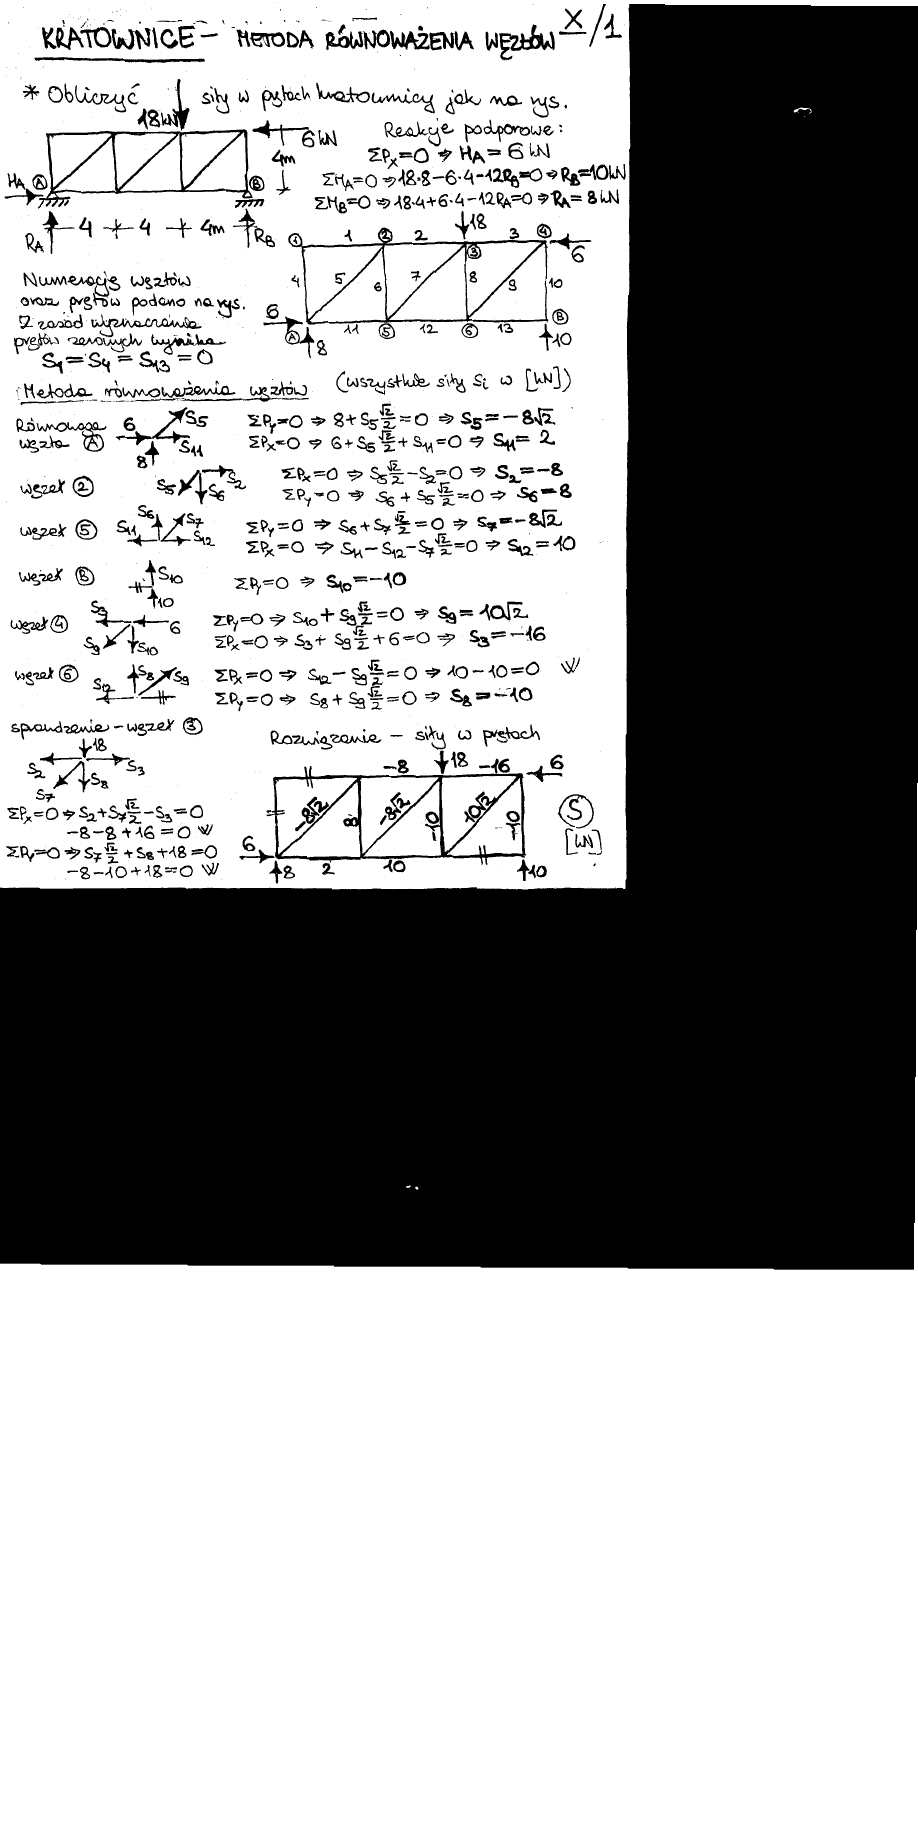 KRATOWNICE – METODA RÓWNOWAŻENIA WĘZŁÓW X/1
* Obliczyć siły w prętach kratownicy jak na rys.
18kN
6kN
4m
HA
A
B
RA
4
4
4m
RB
Reakcje podporowe:
ΣPx=0 ⇒ HA=6kN
ΣMA=0 ⇒ 18·8−6·4−12RB=0 ⇒ RB=10kN
ΣMB=0 ⇒ 18·4+6·4−12RA=0 ⇒ RA=8kN
18
1 1 2 2 3 3 4
6
4 5 6 7 8 9 10
6
A 11 5 12 6 13 B
8
10
Numerację węzłów
oraz prętów podano na rys.
Z zasad wyznaczania
prętów zerowych wynika
S1=S4=S13=0
Metoda równoważenia węzłów (wszystkie siły Si w [kN])
Równowaga
węzła A
6 S5 S11 8
ΣPy=0 ⇒ 8+S5 √2/2=0 ⇒ S5=−8√2
ΣPx=0 ⇒ 6+S5 √2/2+S11=0 ⇒ S11=2
węzeł 2
S5 S6 S2
ΣPx=0 ⇒ S5 √2/2−S2=0 ⇒ S2=−8
ΣPy=0 ⇒ S6+S5 √2/2=0 ⇒ S6=8
węzeł 5
S11 S6 S7 S12
ΣPy=0 ⇒ S6+S7 √2/2=0 ⇒ S7=−8√2
ΣPx=0 ⇒ S11−S12−S7 √2/2=0 ⇒ S12=10
węzeł B
S10
10
ΣPy=0 ⇒ S10=−10
węzeł 4
S3 6 S9 S10
ΣPy=0 ⇒ S10+S9 √2/2=0 ⇒ S9=10√2
ΣPx=0 ⇒ S3+S9 √2/2+6=0 ⇒ S3=−16
węzeł 6
S12 S8 S9
ΣPx=0 ⇒ S12−S9 √2/2=0 ⇒ 10−10=0
ΣPy=0 ⇒ S8+S9 √2/2=0 ⇒ S8=−10
sprawdzenie – węzeł 3
18
S2 S3
S7 S8
ΣPx=0 ⇒ S2+S7 √2/2−S3=0
−8−8+16=0
ΣPy=0 ⇒ S7 √2/2+S8+18=0
−8−10+18=0
Rozwiązanie – siły w prętach
−8 18 −16 6
−8√2 8 −8√2 −10 10√2 −10
S
[kN]
6
8 2 10 10